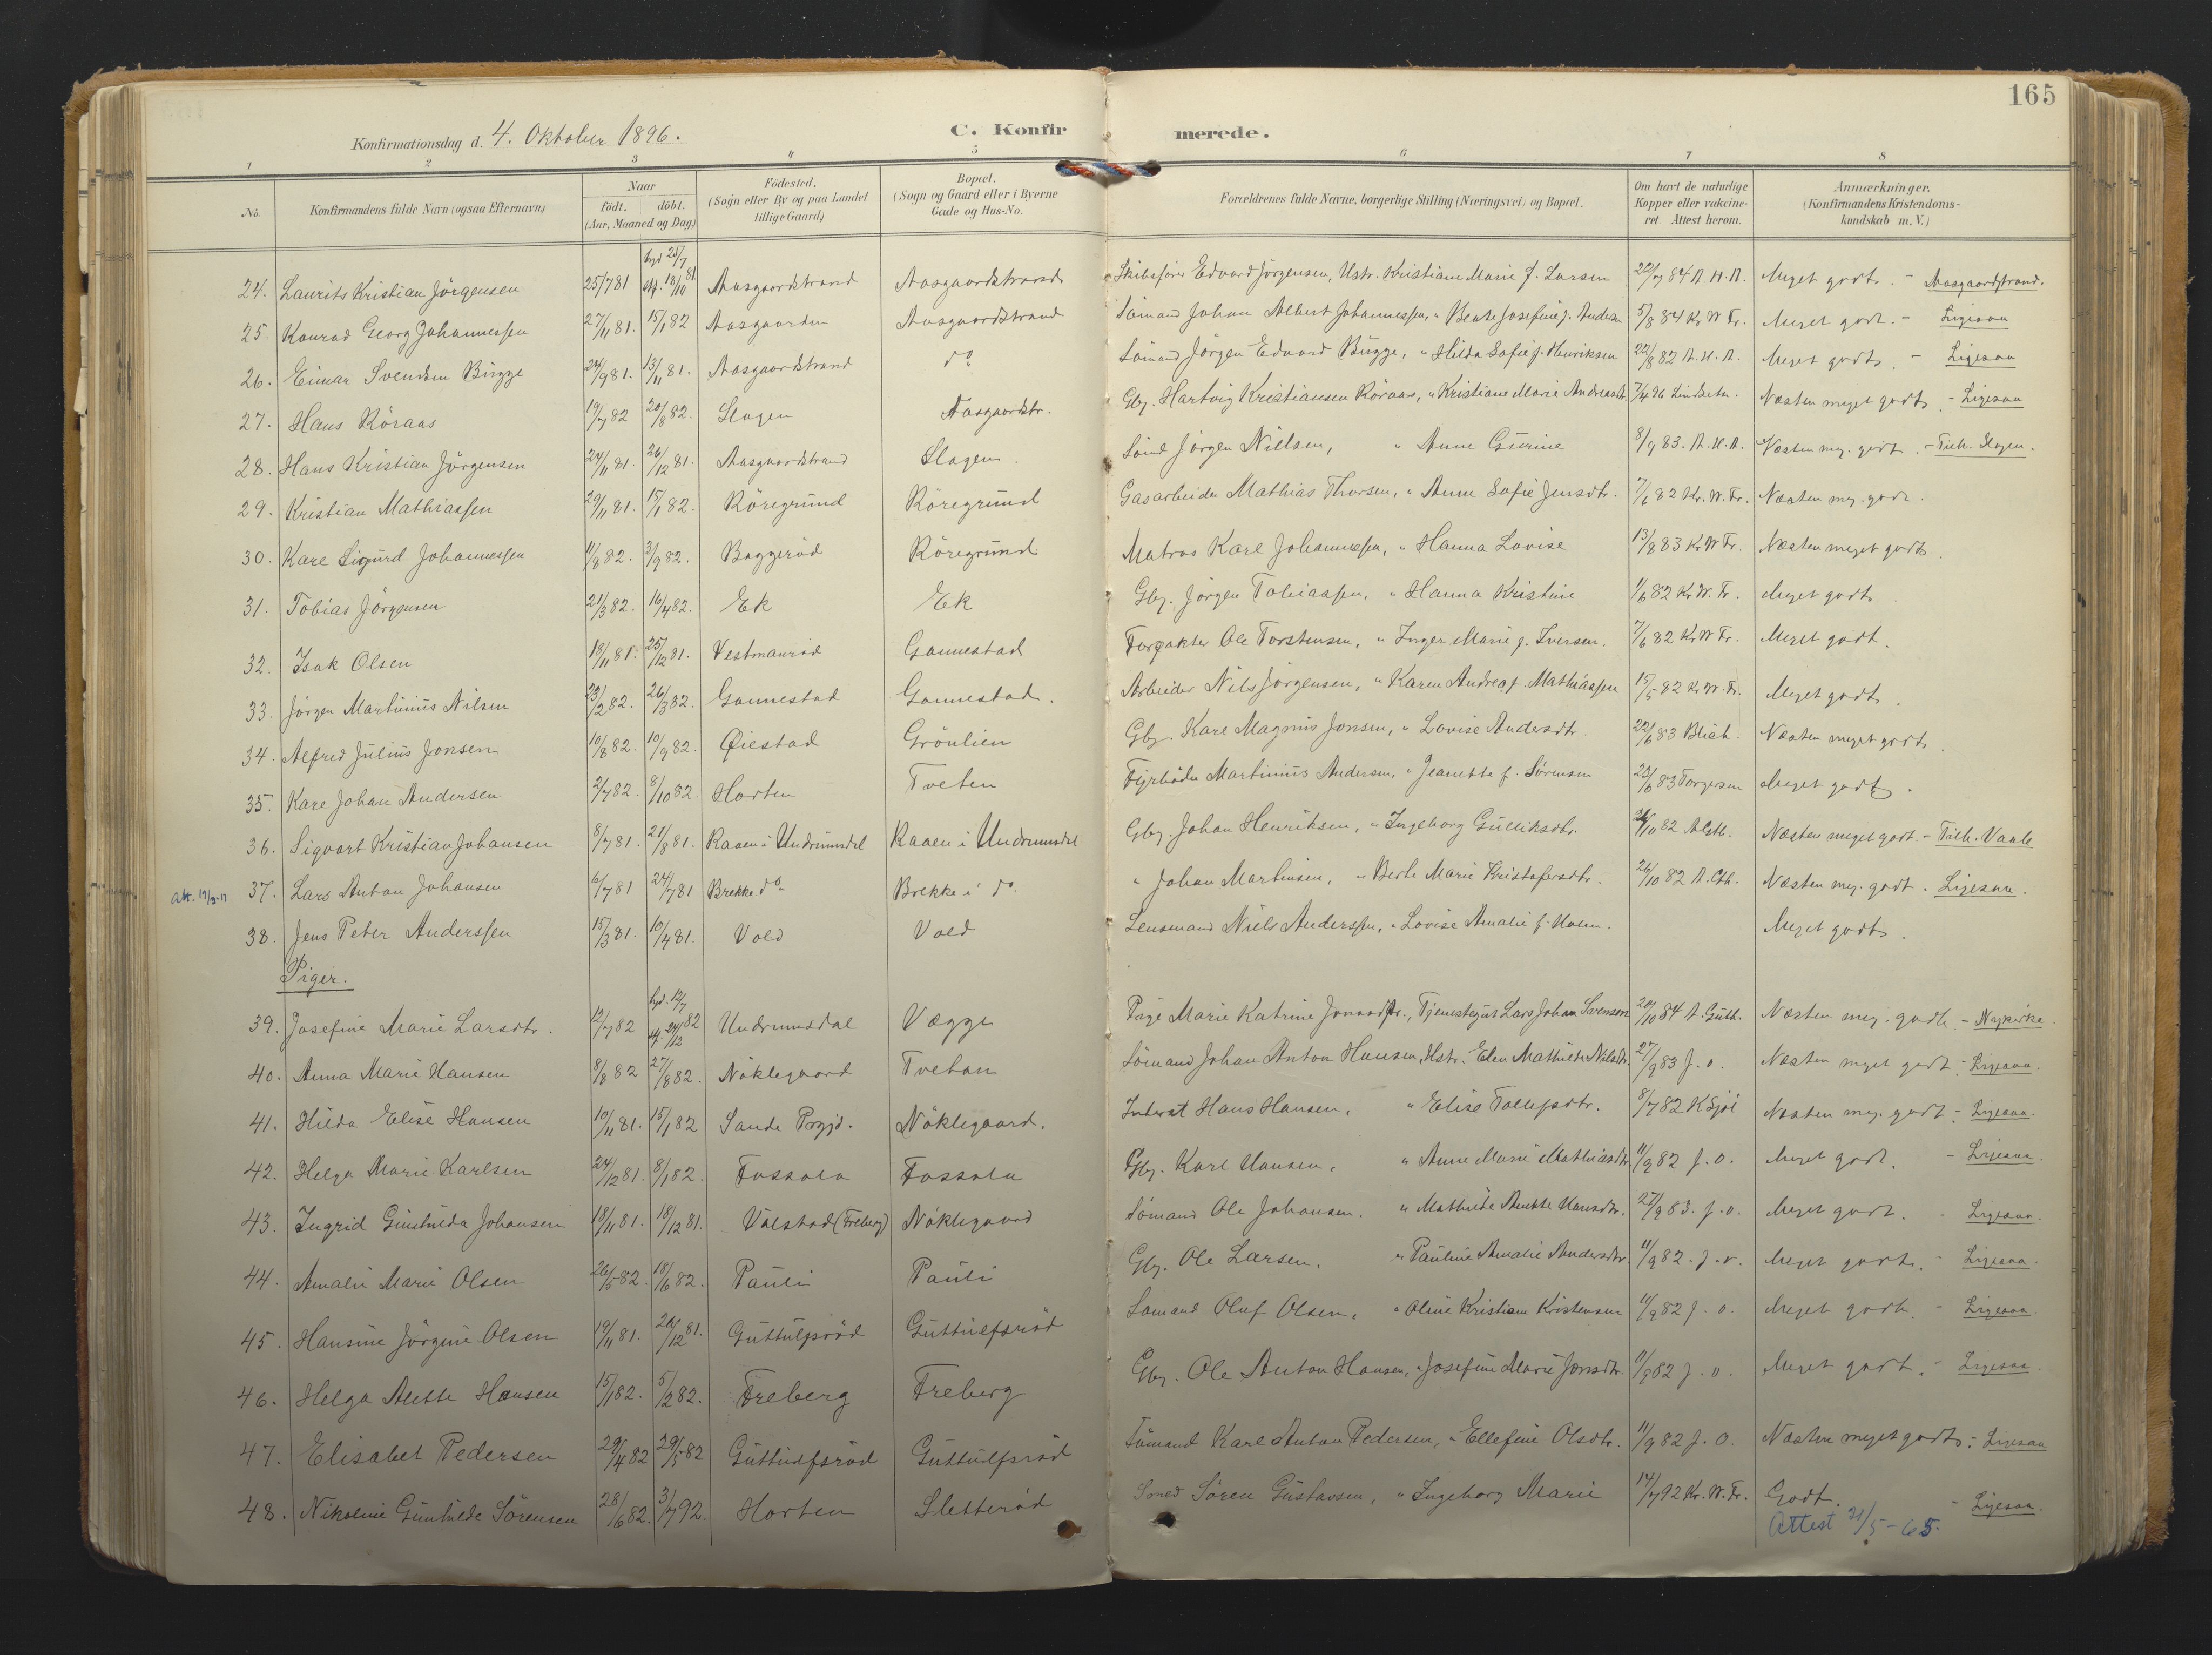 165
Konfirmationsdag d. 4. Oktober 1896.
C. Konfirmerede.
1 2 3 4 5 6 7 8
No. Konfirmandens fulde Navn (ogsaa Efternavn) Naar født. døbt. (Aar, Maaned og Dag) Födested. (Sogn eller By og paa Landet tillige Gaard) Bopæl. (Sogn og Gaard eller i Byerne Gade og Hus-No. Forældrenes fulde Navne, borgerlige Stilling (Næringsvei) og Bopæl. Om havt de naturlige Kopper eller vakcineret. Attest herom. Anmærkninger. (Konfirmandens Kristendomskundskab m. V.)
24. Laurits Kristian Jörgensen 25/7 81 hjd 25/7 stf. 18/10 81 Aasgaardstrand Aasgaardstrand Skibsförer Edvard Jörgensen, Hstr. Kristiane Marie f. Larsen 22/7 84 A. H. A. Meget godt. - Aasgaardstrand.
25. Konrad Georg Johannessen 27/11 81. 15/1 82 Aasgaarden Aasgaardstrand Sömand Johan Albert Johannessen, " Beate Josefine f. Anders. 5/8 84 Kr W Fr. Meget godt. - Ligesaa
26. Einar Svendsen Bugge 24/9 81. 13/11 81. Aasgaardstrand do Sömand Jörgen Edvard Bugge, " Hilda Sofie f. Henriksen 22/8 82 A. H. A. Meget godt. - Ligesaa
27. Hans Röraas 19/7 82 20/8 82. Slagen Aasgaardstr. Gbr. Hartvig Kristiansen Röraas, " Kristiane Marie Andreasdt. 7/4 96 Lindseth. Næsten meget godt. - Ligesaa
28. Hans Kristian Jörgensen 24/11 81. 26/12 81. Aasgaardstrand Slagen. Sömd Jörgen Nielsen, " Anne Gurine 8/9 83. A. H. A. Næsten meg. godt. - Tilh. Slagen.
29. Kristian Mathiassen 29/11 81. 15/1 82. Röregrund Röregrund Gasarbeider Mathias Thorsen, " Anne Sofie Jensdtr. 7/6 82 Kr. W. Fr. Næsten meg. godt.
30. Karl Sigurd Johannessen 11/8 82. 3/9 82. Baggeröd Röregrund Matros Karl Johannessen, " Hanna Lovise 13/8 83 Kr W Fr. Næsten meget godt.
31. Tobias Jörgensen 21/3 82. 16/4 82. Ek Ek Gbr. Jörgen Tobiassen, " Hanna Kristine 1/6 82 Kr. W. Fr. Meget godt.
32. Isak Olsen 18/11 81. 25/12 81. Vestmanröd Gannestad Forpakter Ole Torstensen, " Inger Marie f. Iversen. 7/6 82 Kr W Fr. Meget godt.
33. Jörgen Martinius Nilsen 23/2 82. 26/3 82. Gannestad Gannestad. Arbeider Nils Jörgensen, " Karen Andrea f. Mathiassen 15/5 82 Kr. W. Fr. Meget godt.
34. Alfred Julius Jonsen 10/8 82. 10/9 82. Øiestad Grönlien Gbr. Karl Magnus Jonsen, " Lovise Andersdtr. 22/6 83 Blich. Næsten meget godt.
35. Karl Johan Andersen 2/7 82. 8/10 82. Horten Tveten Fyrböder Martinius Andersen, " Jeanette f. Sörensen 23/6 83 Torgersen Meget godt.
36. Sigvart Kristian Johansen 8/7 81. 21/8 81. Raaen i Undrumsdal Raaen i Undrumsdal Gbr. Johan Henriksen, " Ingeborg Gulliksdtr. /10 82 Næsten meget godt. - Tilh. Vaale
Att. 19/3-17 37. Lars Anton Johansen 6/7 81 24/7 81 Brekke do Brekke i do. " Johan Martinsen, " Berte Marie Kristofersdtr. 26/10 82 A. Gth. Næsten meg. godt. Ligesaa.
38. Jens Peter Anderssen 15/3 81. 10/4 81. Vold Vold Lensmand Niels Anderssen, " Lovise Amalie f. Holm. Meget godt.
Piger.
39. Josefine Marie Larsdtr. 12/7 82 hjd. 12/7 stf. 24/12 82 Undrumsdal Vægge Pige Marie Katrine Jonasdtr., Tjenestegut Lars Johan Svensen 20/10 84 A. Guth. Næsten meg. godt. - Nykirke.
40. Anna Marie Hansen 8/8 82 27/8 82. Nöklegaard Tveten Sömand Johan Anton Hansen, Hstr. Elen Mathilde Nilsdtr. 27/9 83 J. O. Næsten meget godt - Ligesaa.
41. Hilda Elise Hansen 10/11 81. 15/1 82 Sande Prgjd. Nöklegaard. Inderst Hans Hansen, " Elise Tollefsdtr. 8/7 82 K Sjöl Næsten meg. godt - Ligesaa.
42. Helga Marie Karlsen 24/12 81. 8/1 82. Fossala Fossala Gbr. Karl Hansen, " Anne Marie Mathiasdtr. 11/9 82 J. O. Meget godt. - Ligesaa.
43. Ingrid Gunhilda Johansen 18/11 81. 18/12 81. Valstad (Freberg) Nöklegaard Sömand Ole Johansen. " Mathilde Anette Hansdtr. 27/9 83. J. O. Meget godt. - Ligesaa.
44. Amalie Marie Olsen 26/5 82. 18/6 82. Pauli Pauli Gbr. Ole Larsen, " Pauline Amalie Andersdtr. 11/9 82. J. O. Meget godt. - Ligesaa.
45. Hansine Jörgine Olsen 19/11 81. 26/12 81. Guttulfsröd Guttulfsröd Sömand Oluf Olsen, " Oline Kristiane Kristensen 11/9 82 J. O. Meget godt. - Ligesaa.
46. Helga Anette Hansen 15/1 82. 5/2 82. Freberg Freberg Gbr. Ole Anton Hansen, " Josefine Marie Jonsdtr. 11/9 82 J. O. Meget godt. - Ligesaa.
47. Elisabet Pedersen 29/4 82 29/5 82 Guttulfsröd Guttulfsröd Sömand Karl Anton Pedersen, " Ellefine Olsdtr. 11/9 82 J. O. Næsten meget godt. - Ligesaa
48. Nikoline Gunhilde Sörensen 28/6 82. 3/7 92. Horten Sletteröd Smed Sören Gustavsen, " Ingeborg Marie 14/7 92 Kr. W. Fr. Godt. - Ligesaa.
Attest 21/5-65.